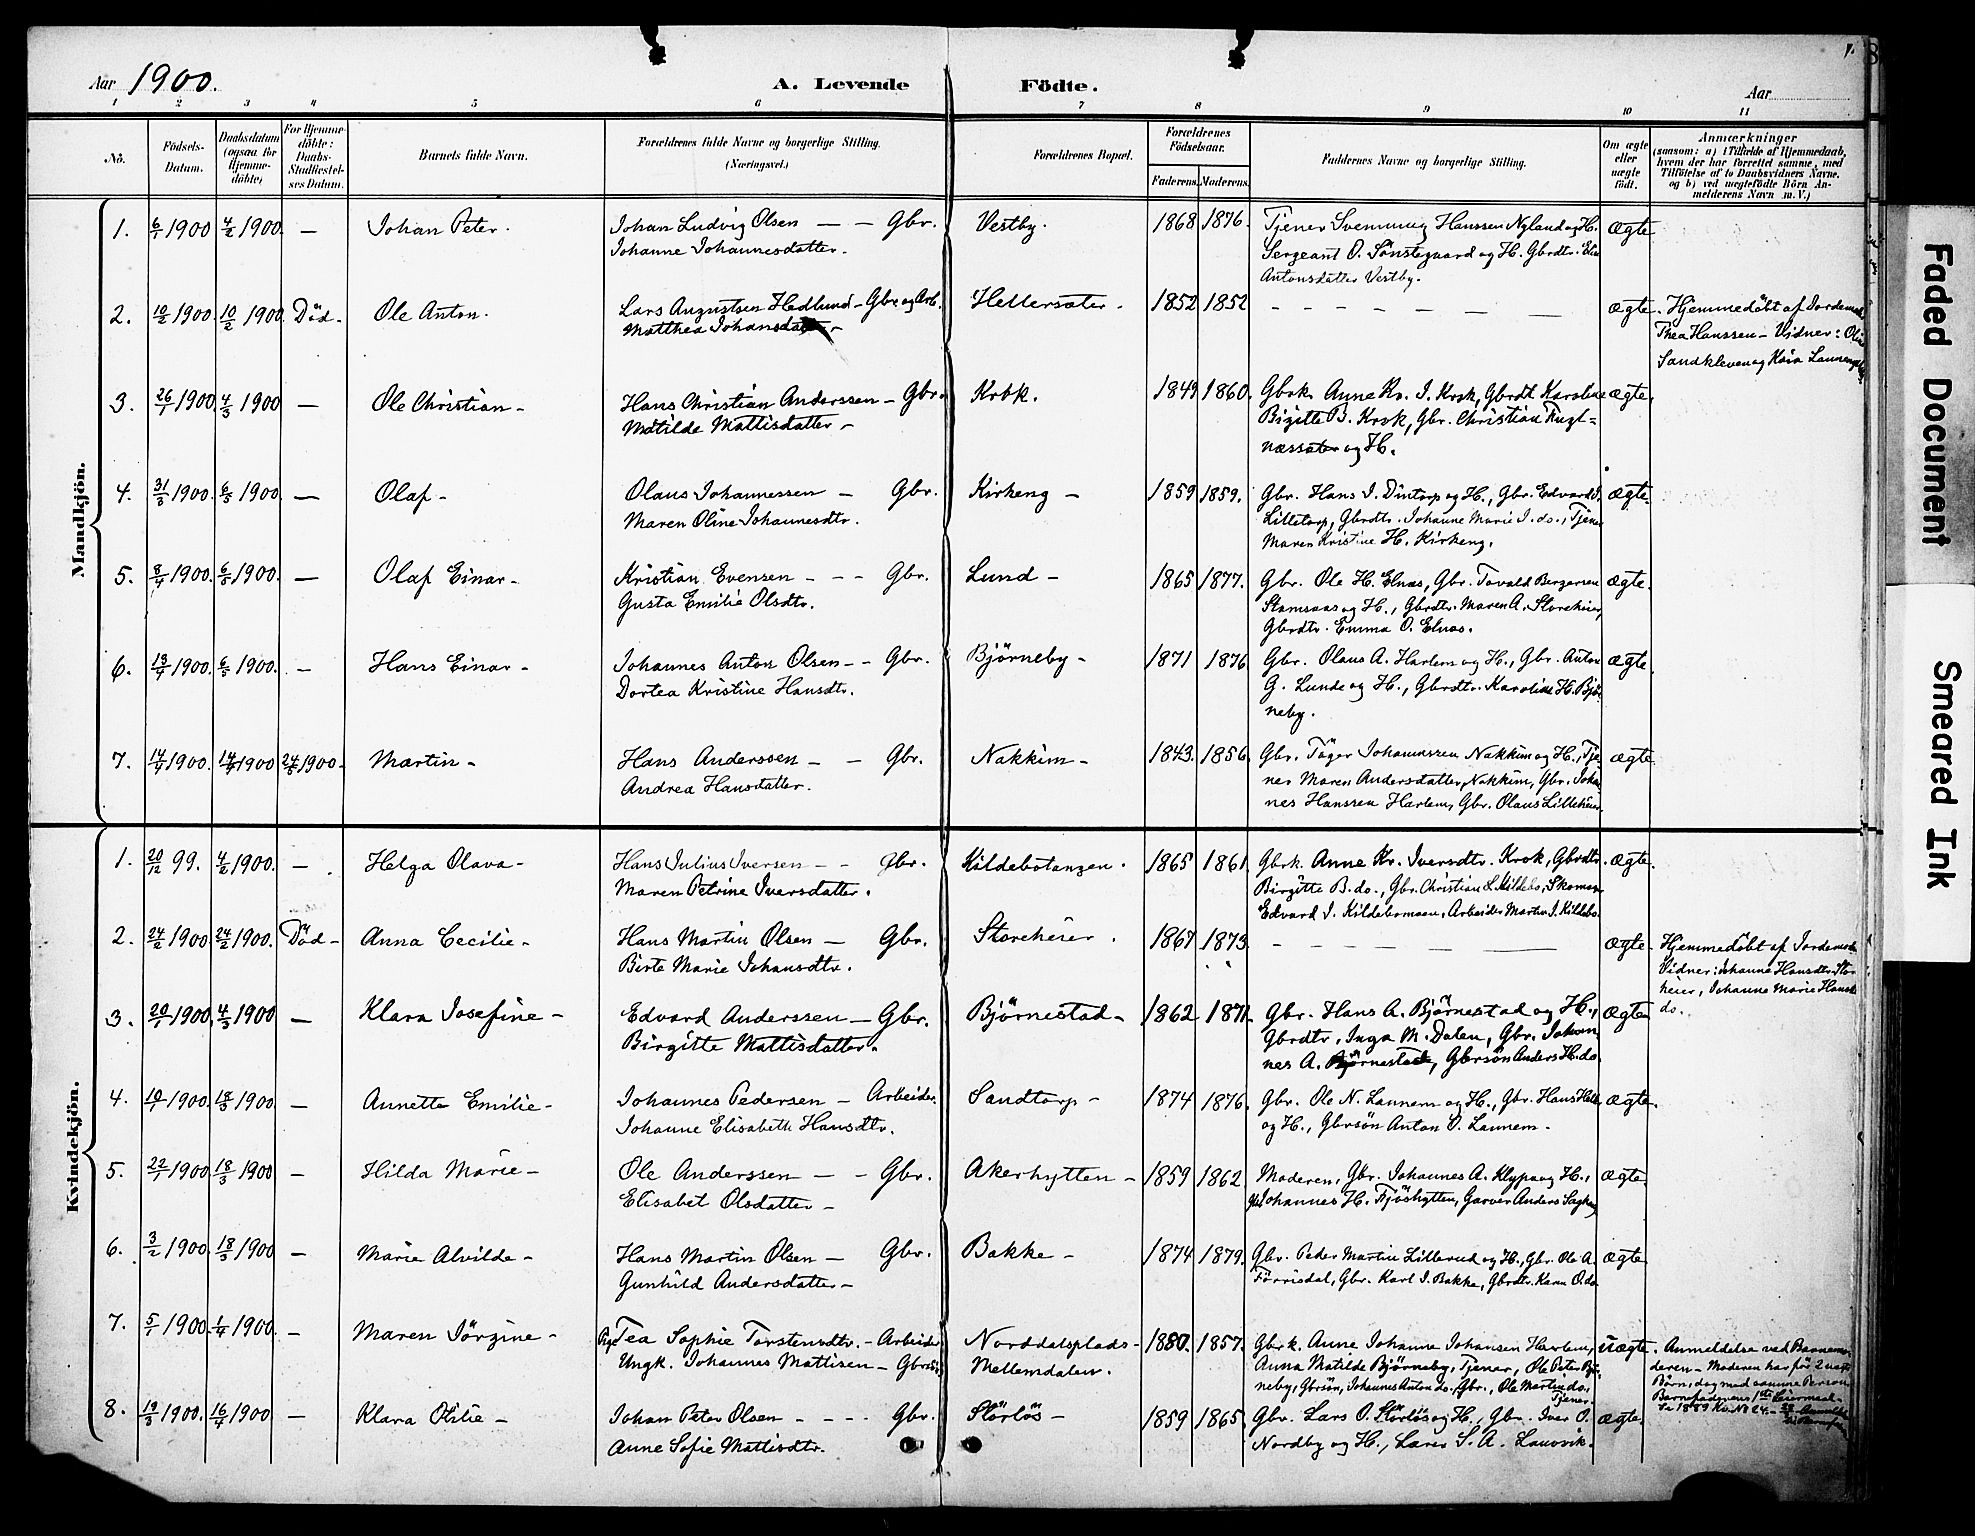 Aar 1900.
A. Levende Födte.
Aar
8
1 2 3 4 5 6 7 8 9 10 11
No.
Födsels-
Datum.
Daabsdatum
(ogsaa for
Hjemme-
döbte)
For Hjemme-
döbte:
Daabs-
Stadfæstel-
ses Datum.
Barnets fulde Navn.
Forældrenes fulde Navne og borgerlige Stilling.
(Næringsvei.)
Forældrenes Bopæl.
Forældrenes
Födselsaar.
Faderens. Moderens.
Faddernes Navne og borgerlige Stilling.
Om ægte
eller
uægte
födt.
Anmærkninger
(saasom: a) i Tilfælde af Hjemmedaab,
hvem der har forrettet samme, med
Tilföielse af to Daabsvidners Navne.
og b) ved uægtefödte Börn An-
melderens Navn m. V.)
Mandkjön.
1. 6/1 1900 4/2 1900. — Johan Peter. Johan Ludvig Olsen — — Gbr. Vestby. 1868 1876. Tjener Svennung Hanssen Nyland og H. ægte
Johanne Johannesdatter. Sergeant O. Sönstegaard og H. Gbrdtr.
Antonsdatter Vestby.
2. 10/2 1900. 10/2 1900. Död- Ole Anton. Lars Augustsen Hedlund - Gbr. og Arb. Hellersæter. 1852 1852 — — — — — ægte. Hjemmedöbt af
Matthea Thea Hanssen - Vidner:
Sandkleven og
3. 26/1 1900 4/3 1900 — Ole Christian - Hans Christian Anderssen - Gbr. Krok. 1849 1860. Gbrk. Anne Kr. I. Krok, Gbrdt. Karoline ægte.
Matilde Mattisdatter - Birgitte B. Krok, Gbr. Christian
næssæter og H.
4. 31/3 1900. 6/5 1900. — Olaf - Olaus Johannessen — Gbr. Kirkeng - 1859 1859. Gbr. Hans I. Dintorp og H., Gbr. Edvard I. ægte.
Maren Oline Johannesdtr. Lilletorp, Gbrdtr. Johanne Marie I. do., Tjener
Maren Kristine H. Kirkeng.
5. 8/4 1900. 6/5 1900. — Olaf Einar - Kristian Evensen - - - Gbr. Lund - 1865 1877. Gbr. Ole H. Elnæs, Gbr. Bergersen ægte.
Gusta Emilie Olsdtr. og H., Gbrdtr. Maren A. Storeheier,
Gbrdtr. Emma O. Elnæs.
6. 13/4 1900. 6/5 1900. — Hans Einar - Johannes Anton Olsen - - Gbr. Björneby - 1871 1876 Gbr. Olaus A. Harlem og H., Gbr. Anton ægte
Dortea Kristine Hansdtr. G. Lunde og H., Gbrdtr. Karoline H. Björ-
neby.
7. 14/4 1900. 14/4 1900 24/5 1900. Martin - Hans Anderssen - - Gbr. Nakkim - 1843. 1856. Gbr. Johannessen Nakkim og H., Tje- ægte
Andrea Hansdatter. ner Maren Andersdatter Nakkim, Gbr. Johan-
nes Hanssen Harlem, Gbr. Olaus Lilleheier.
Kvindekjön.
1. 20/12 99. 4/2 1900. — Helga Olava - Hans Julius Iversen - - Gbr. Kildebotangen. 1865 1861. Gbrk. Anne Kr. Iversdtr. Krok, Gbrdtr. ægte.
Maren Petrine Iversdatter. Birgitte B. do., Gbr. Christian Kildebo, Skomager
Edvard I. Kildebomoen, Arbeider Martin I. Kildebo.
2. 24/2 1900 24/2 1900. Död - Anna Cecilie - Hans Martin Olsen — Gbr. Storeheier. 1867 1873. — — — — — ægte. Hjemmedöbt af
Berte Marie Johansdtr. Vidner: Johanne Hansdtr. Store-
heier, Johanne Marie
do.
3. 20/1 1900. 4/3 1900 — Klara Josefine - Edvard Anderssen - Gbr. Björnestad - 1862 1871. Gbr. Hans A. Björnestad og H., ægte
Birgitte Mattisdatter. Gbrdtr. Inga M. Dalen, Gbr. Johan-
nes A. Björnestad, Gbrsön Anders H. do.
4. 1900. 18/3 1900 — Annette Emilie - Johannes Pedersen - Arbeider. Sandtorp - 1874 1876. Gbr. Ole N. Lannem og H., Gbr. Hans ægte.
Johanne Elisabeth Hansdtr. og H., Gbrsön Anton O. Lannem.
5. 22/1 1900 18/3 1900 — Hilda Marie - Ole Anderssen - - Gbr. Akerhytten - 1859 1862 Moderen, Gbr. Johannes A. Klypa og H., ægte
Elisabet Olsdatter - Johannes H. Fjöshytten, Garver Anders
6. 3/2 1900 18/3 1900 — Marie Alvilde - Hans Martin Olsen - Gbr. Bakke - 1874 1879. Gbr. Peder Martin Lillerud og H., Gbr. Ole A. ægte
Gunhild Andersdatter - Förrisdal, Gbr. Karl I. Bakke, Gbrdtr. Karen O. do.
7. 5/1 1900. 1/4 1900. — Maren Jörgine - Pige Tea Sophie Torstensdtr. - Arbeider Norddalsplads - 1880. 1857. Gbrk. Anne Johanne Johansen Harlem, uægte. Anmeldelse ved Barnemo-
Ungk. Johannes Mattisen - Gbrsön Mellemdalen. Anna Matilde Björneby, Tjener, Ole Peter Björ- deren - Moderen har för 2 uægte
neby, Gbrsön, Johannes Anton do., Gbr., Ole Martin do., Börn, dog med samme Person.
Tjener. Barnefaderens 1ste
Se 1889 Kv. No 24.
8. 19/3 1900. 16/4 1900 — Klara Otilie - Johan Peter Olsen - - - Gbr. Störlös - 1859 1865. Gbr. Lars O. Störlös og H., Gbr. Iver O. ægte.
Anne Sofie Mattisdtr. Nordby og H., S. A. Lauvvik.
Faded Document
Smeared Ink